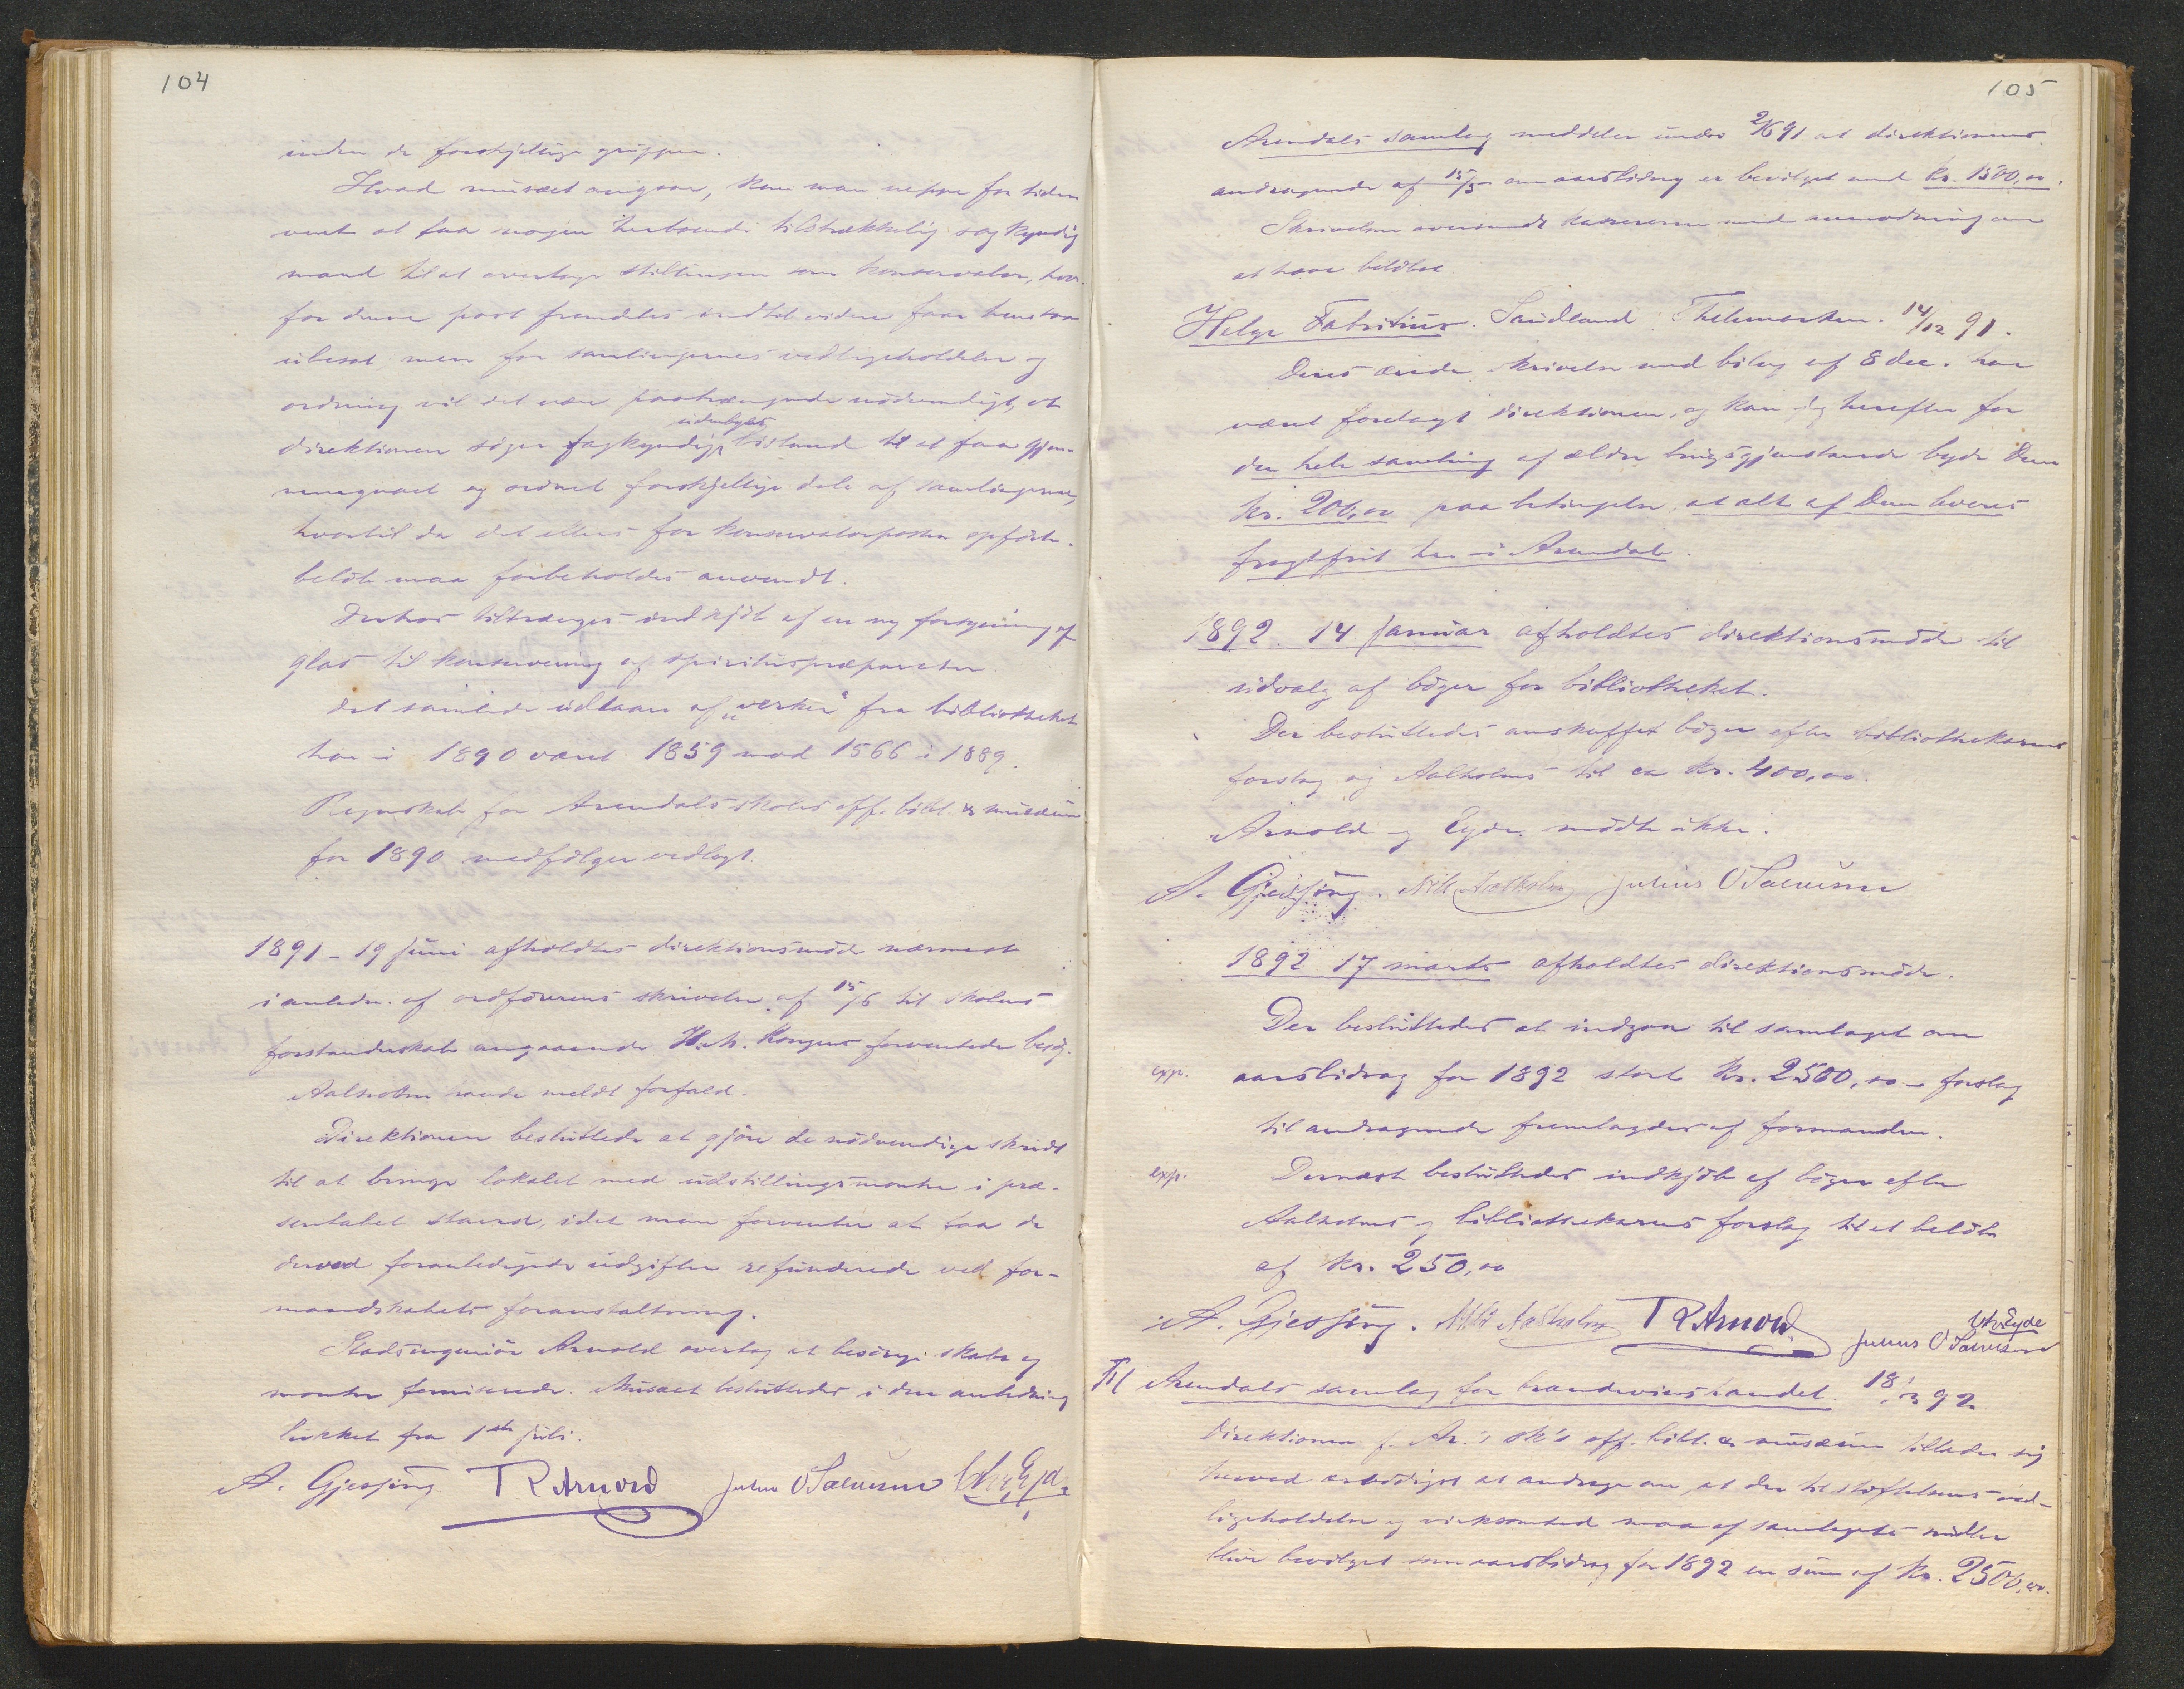 104
inden de forskjellige grupper.
Hvad musæet angaar, kan man neppe for tiden
vente at faa nogen herboende tilstrækkelig sagkyndig
mand til at overtage stillingen som konservator, hvor-
for denne post fremdeles indtil videre faar henstaa
ubesat, men for samlingernes vedligeholdelse og
ordning vil det være paatrængende nödvendigt, at
udenbyes
direktionen söger fagkyndig bistand til at faa gjen-
nemgaaet og ordnet forskjellige dele af samlingerne,
hvortil da det ellers for konservatorposten opförte
belöb maa forbeholdes anvendt.
Derhos tiltrænges indkjöb af en ny forsyning af
glas til konservering af spirituspræparater.
Det samlede udlaan af "verker" fra bibliotheket
har i 1890 været 1859 mod 1566 i 1889.
Regnskab for Arendals skoles off. bibl. & musæum
for 1890 medfölger vedlagt.
1891 - 19 juni afholdtes direktionsmöde nærmest
i anledn. af ordförerens skrivelse af 15/6 til skolens
forstanderskab angaaende H. M. Kongens forventede besög.
Aalholm havde meldt forfald.
Direktionen besluttede at gjöre de nödvendige skridt
til at bringe lokalet med udstillingsmontre i præ-
sentabel stand, idet man forventer at faa de
derved foranledigede udgifter refunderede ved for-
mandskabets foranstaltning.
Stadsingeniör Arnold overtog at besörge skabe og
montre forniserede. Musæet besluttedes i den anledning
lukket fra 1ste juli.
A. Gjessing T R Arnold Julius O Salvesen Eyde
105
Arendals samlag meddeler under 2/6 91 at direktionens
andragende af 15/5 om aarsbidrag er bevilget med kr. 1500,00.
Skrivelsen oversendt kassereren med anmodning om
at hæve belöbet.
Helge Fabritius. Sandland Thelemarken. 14/12 91.
Deres ærede skrivelse med bilag af 8 dec. har
været forelagt direktionen, og kan jeg herefter for
den hele samling af ældre brugsgjenstande byde Dem
kr. 200,00 paa betingelse at alt af Dem leveres
fragtfrit her i Arendal.
1892. 14 januar afholdtes direktionsmöde til
udvalg af böger for bibliotheket.
Der besluttedes anskaffet böger efter bibliothekarens
forslag og Aalholms til ca kr. 400,00.
Arnold og Eyde mödte ikke.
A. Gjessing. Nils Aalholm Julius O Salvesen
1892 17 marts afholdtes direktionsmöde.
Der besluttedes at indgaa til samlaget om
exp. aarsbidrag for 1892 stort kr. 2500,00 - forslag
til andragende fremlagdes af formanden.
exp. Dernæst besluttedes indkjöb af böger efter
Aalholms og bibliothekarens forslag til et belöb
af kr. 250,00
A. Gjessing. Nils Aalholm T R Arnold Eyde
Julius O Salvesen
Til Arendals samlag for brændevinshandel. 18/3 92.
Direktionen f. Ar.'s sk's off. bibl. & musæum tillader sig
herved ærbödigst at andrage om at der til stiftelsens ved-
ligeholdelse og virksomhed maa af samlagets midler
blive bevilget som aarsbidrag for 1892 en sum af kr. 2500,00.